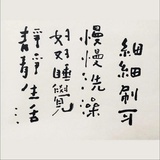 細細刷牙
慢慢洗澡
好好睡覺
靜靜生活
青青生活…